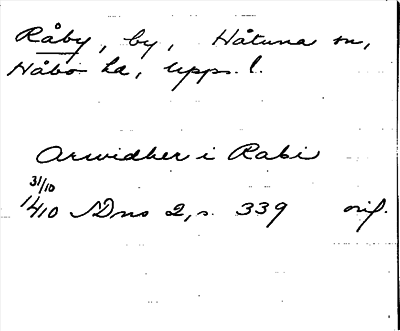 Råby, by, Håtuna sn,
Håbo hd, Upps. l.
Arwidher i Rabi
31/10
1410 SDns 2, s. 339 orig.